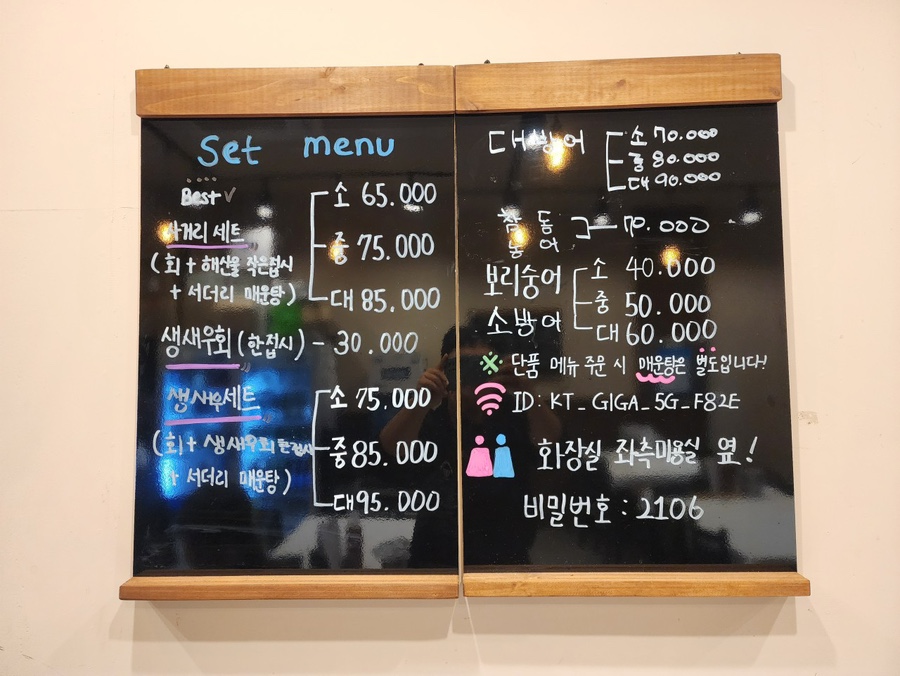 Set menu
Best ✓
사거리 세트
(회 + 해산물 작은접시
+ 서더리 매운탕)
소 65.000
중 75.000
대 85.000
생새우회 (한접시) - 30.000
생새우세트
(회 + 생새우회 큰접시
+ 서더리 매운탕)
소 75.000
중 85.000
대 95.000
대방어
소 70.000
중 80.000
대 90.000
참돔
농어
70.000
보리숭어
소방어
소 40.000
중 50.000
대 60.000
※ 단품 메뉴 주문 시 매운탕은 별도입니다!
ID: KT_GIGA_5G_F82E
화장실 좌측미용실 옆!
비밀번호 : 2106